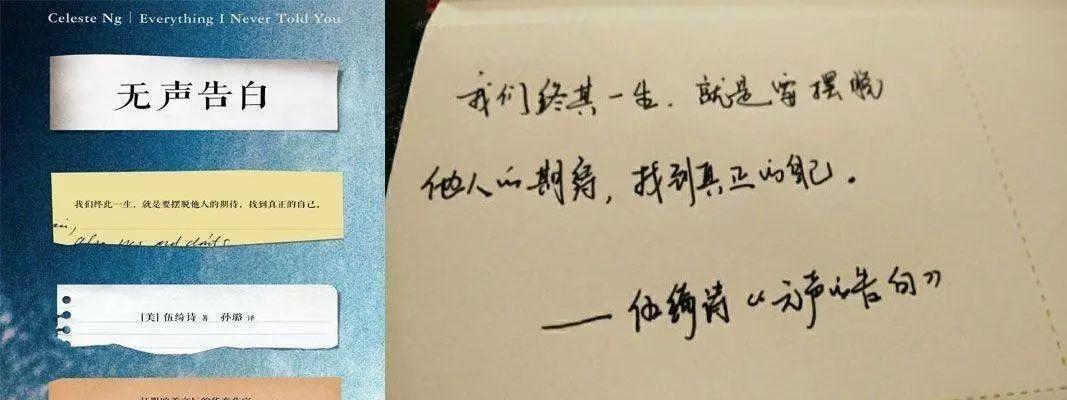 Celeste Ng | Everything I Never Told You
无声告白
我们终此一生，就是要摆脱他人的期待，找到真正的自己。
[美] 伍绮诗 著 孙璐 译
我们终其一生，就是要摆脱
他人的期待，找到真正的自己。
——伍绮诗《无声的告白》